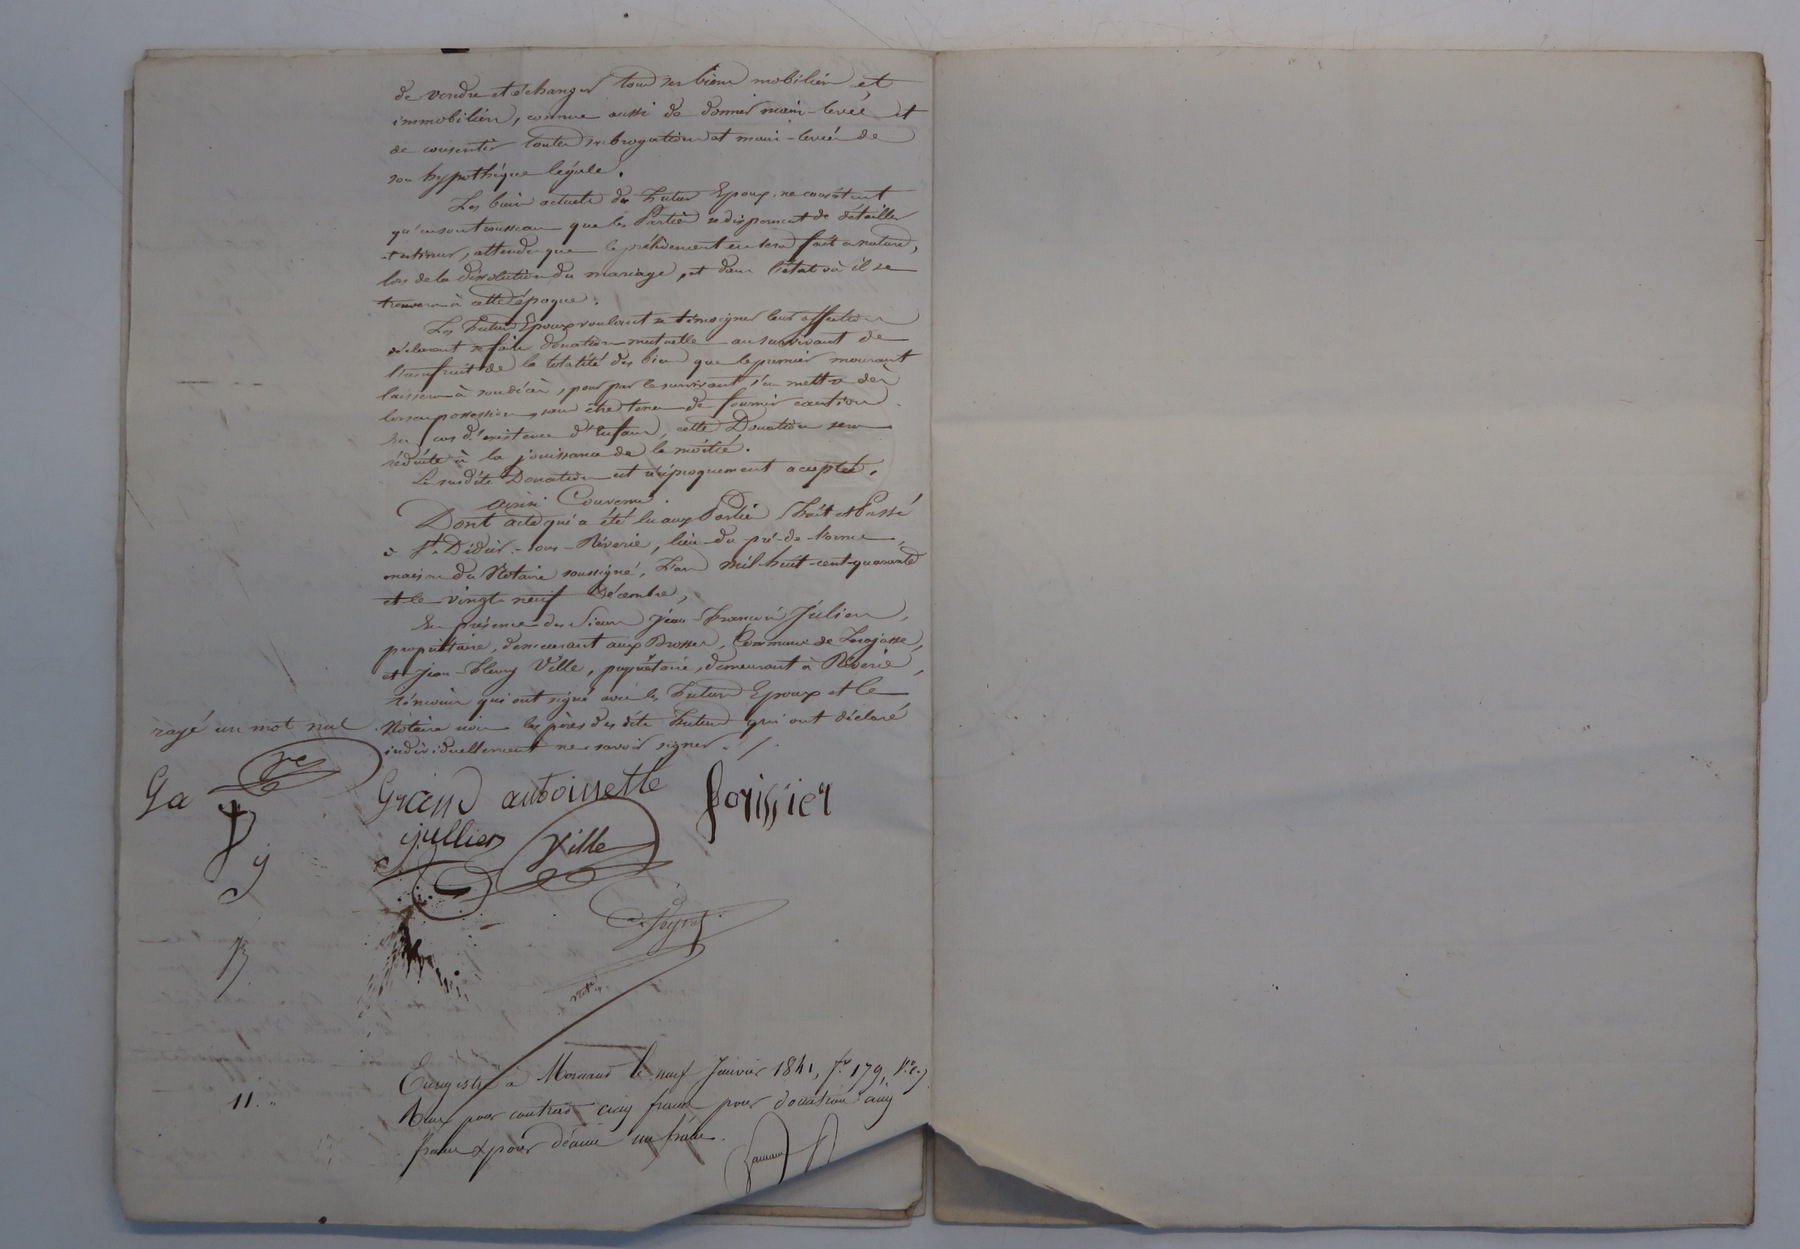 de vendre et échanger tous ses biens mobiliers et
immobiliers, comme aussi de donner main levée et
de consentir toutes subrogations et main-levée de
son hypothèque légale.
Les biens actuels des Futurs Epoux ne consistent
qu'en son trousseau que les Parties se dispensent de détailler
et estimer, attendu que le prélèvement en sera fait en nature,
lors de la dissolution du mariage, et dans l'état où il se
trouvera à cette époque.
Les Futurs Epoux voulant se témoigner leur affection
déclarent se faire donation mutuelle au survivant de
l'usufruit de la totalité des biens que le premier mourant
laissera à son décès, pour par le survivant s'en mettre dès
lors en possession, sans être tenu de fournir caution.
En cas d'existence d'Enfans, cette Donation sera
réduite à la jouissance de la moitié.
La susdite Donation est réciproquement acceptée.
Ainsi Convenu.
Dont acte qui a été lu aux Parties Fait et Passé
à St. Didier-sous-Riverie, lieu du pré-de-l'orme,
maison du Notaire soussigné, L'an mil-huit-cent-quarante
et le vingt-neuf Décembre,
En présence des Sieurs Jean François Julien,
propriétaire, demeurant aux Brosses, Commune de Larajasse,
et Jean-Fleury Ville, propriétaire, demeurant à Riverie,
témoins qui ont signé avec les Futurs Epoux et le
Notaire non les pères des dits Futurs qui ont déclaré
individuellement ne savoir signer ./.
rayé un mot nul
Ga
Grand antoinette forissier
jullien Ville
J
Peyret
not.
Enregistré à Mornant le neuf Janvier 1841, fo. 179,
Reçu pour contrat cinq francs pour donation cinq
francs & pour décime un franc.
11. "